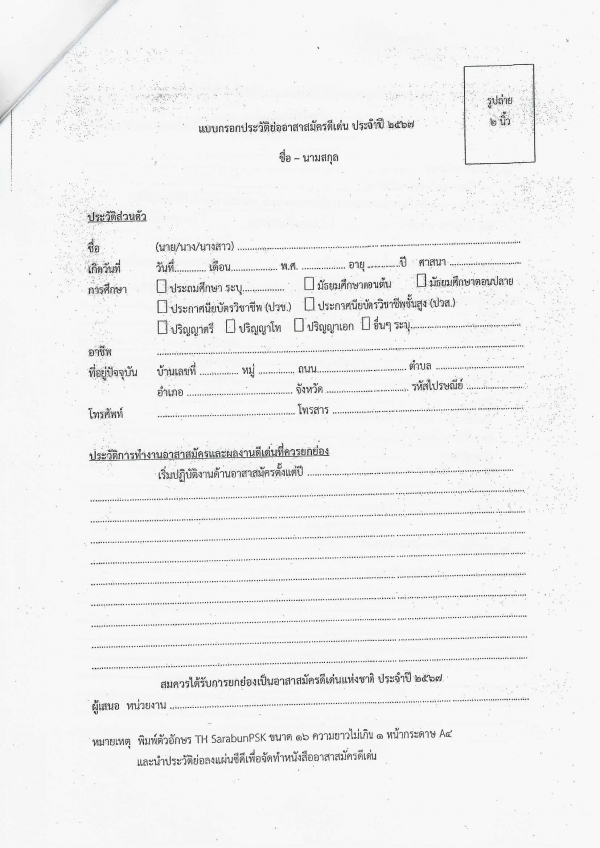 รูปถ่าย
๒ นิ้ว
แบบกรอกประวัติย่ออาสาสมัครดีเด่น ประจำปี ๒๕๖๗
ชื่อ – นามสกุล
ประวัติส่วนตัว
ชื่อ (นาย/นาง/นางสาว) ........................................
เกิดวันที่ วันที่........... เดือน................ พ.ศ. ............... อายุ ...........ปี ศาสนา .........................
การศึกษา ☐ ประถมศึกษา ระบุ............... ☐ มัธยมศึกษาตอนต้น ☐ มัธยมศึกษาตอนปลาย
☐ ประกาศนียบัตรวิชาชีพ (ปวช.) ☐ ประกาศนียบัตรวิชาชีพชั้นสูง (ปวส.)
☐ ปริญญาตรี ☐ ปริญญาโท ☐ ปริญญาเอก ☐ อื่นๆ ระบุ........................................
อาชีพ ........................................
ที่อยู่ปัจจุบัน บ้านเลขที่ .............. หมู่ ............. ถนน................................ ตำบล ................................
อำเภอ ..................................... จังหวัด ............................. รหัสไปรษณีย์ ....................
โทรศัพท์ ........................................ โทรสาร ........................................
ประวัติการทำงานอาสาสมัครและผลงานดีเด่นที่ควรยกย่อง
เริ่มปฏิบัติงานด้านอาสาสมัครตั้งแต่ปี ........................................
........................................
........................................
........................................
........................................
........................................
........................................
........................................
........................................
........................................
สมควรได้รับการยกย่องเป็นอาสาสมัครดีเด่นแห่งชาติ ประจำปี ๒๕๖๗
ผู้เสนอ หน่วยงาน ........................................
หมายเหตุ พิมพ์ตัวอักษร TH SarabunPSK ขนาด ๑๖ ความยาวไม่เกิน ๑ หน้ากระดาษ A๔
และนำประวัติย่อลงแผ่นซีดีเพื่อจัดทำหนังสืออาสาสมัครดีเด่น